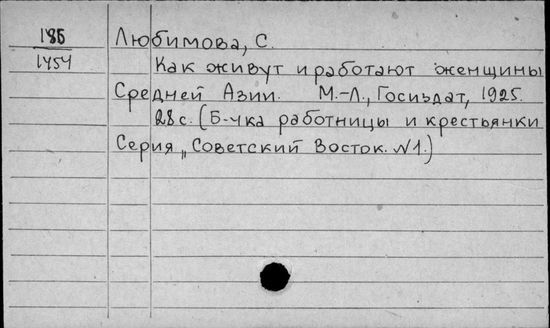 185
1454
Любимова, С.
Как живут и работают женщины
Средней Азии. М.-Л., Госиздат, 1925.
28с. (Б-чка работницы и крестьянки
Серия „Советский Восток. N1.)